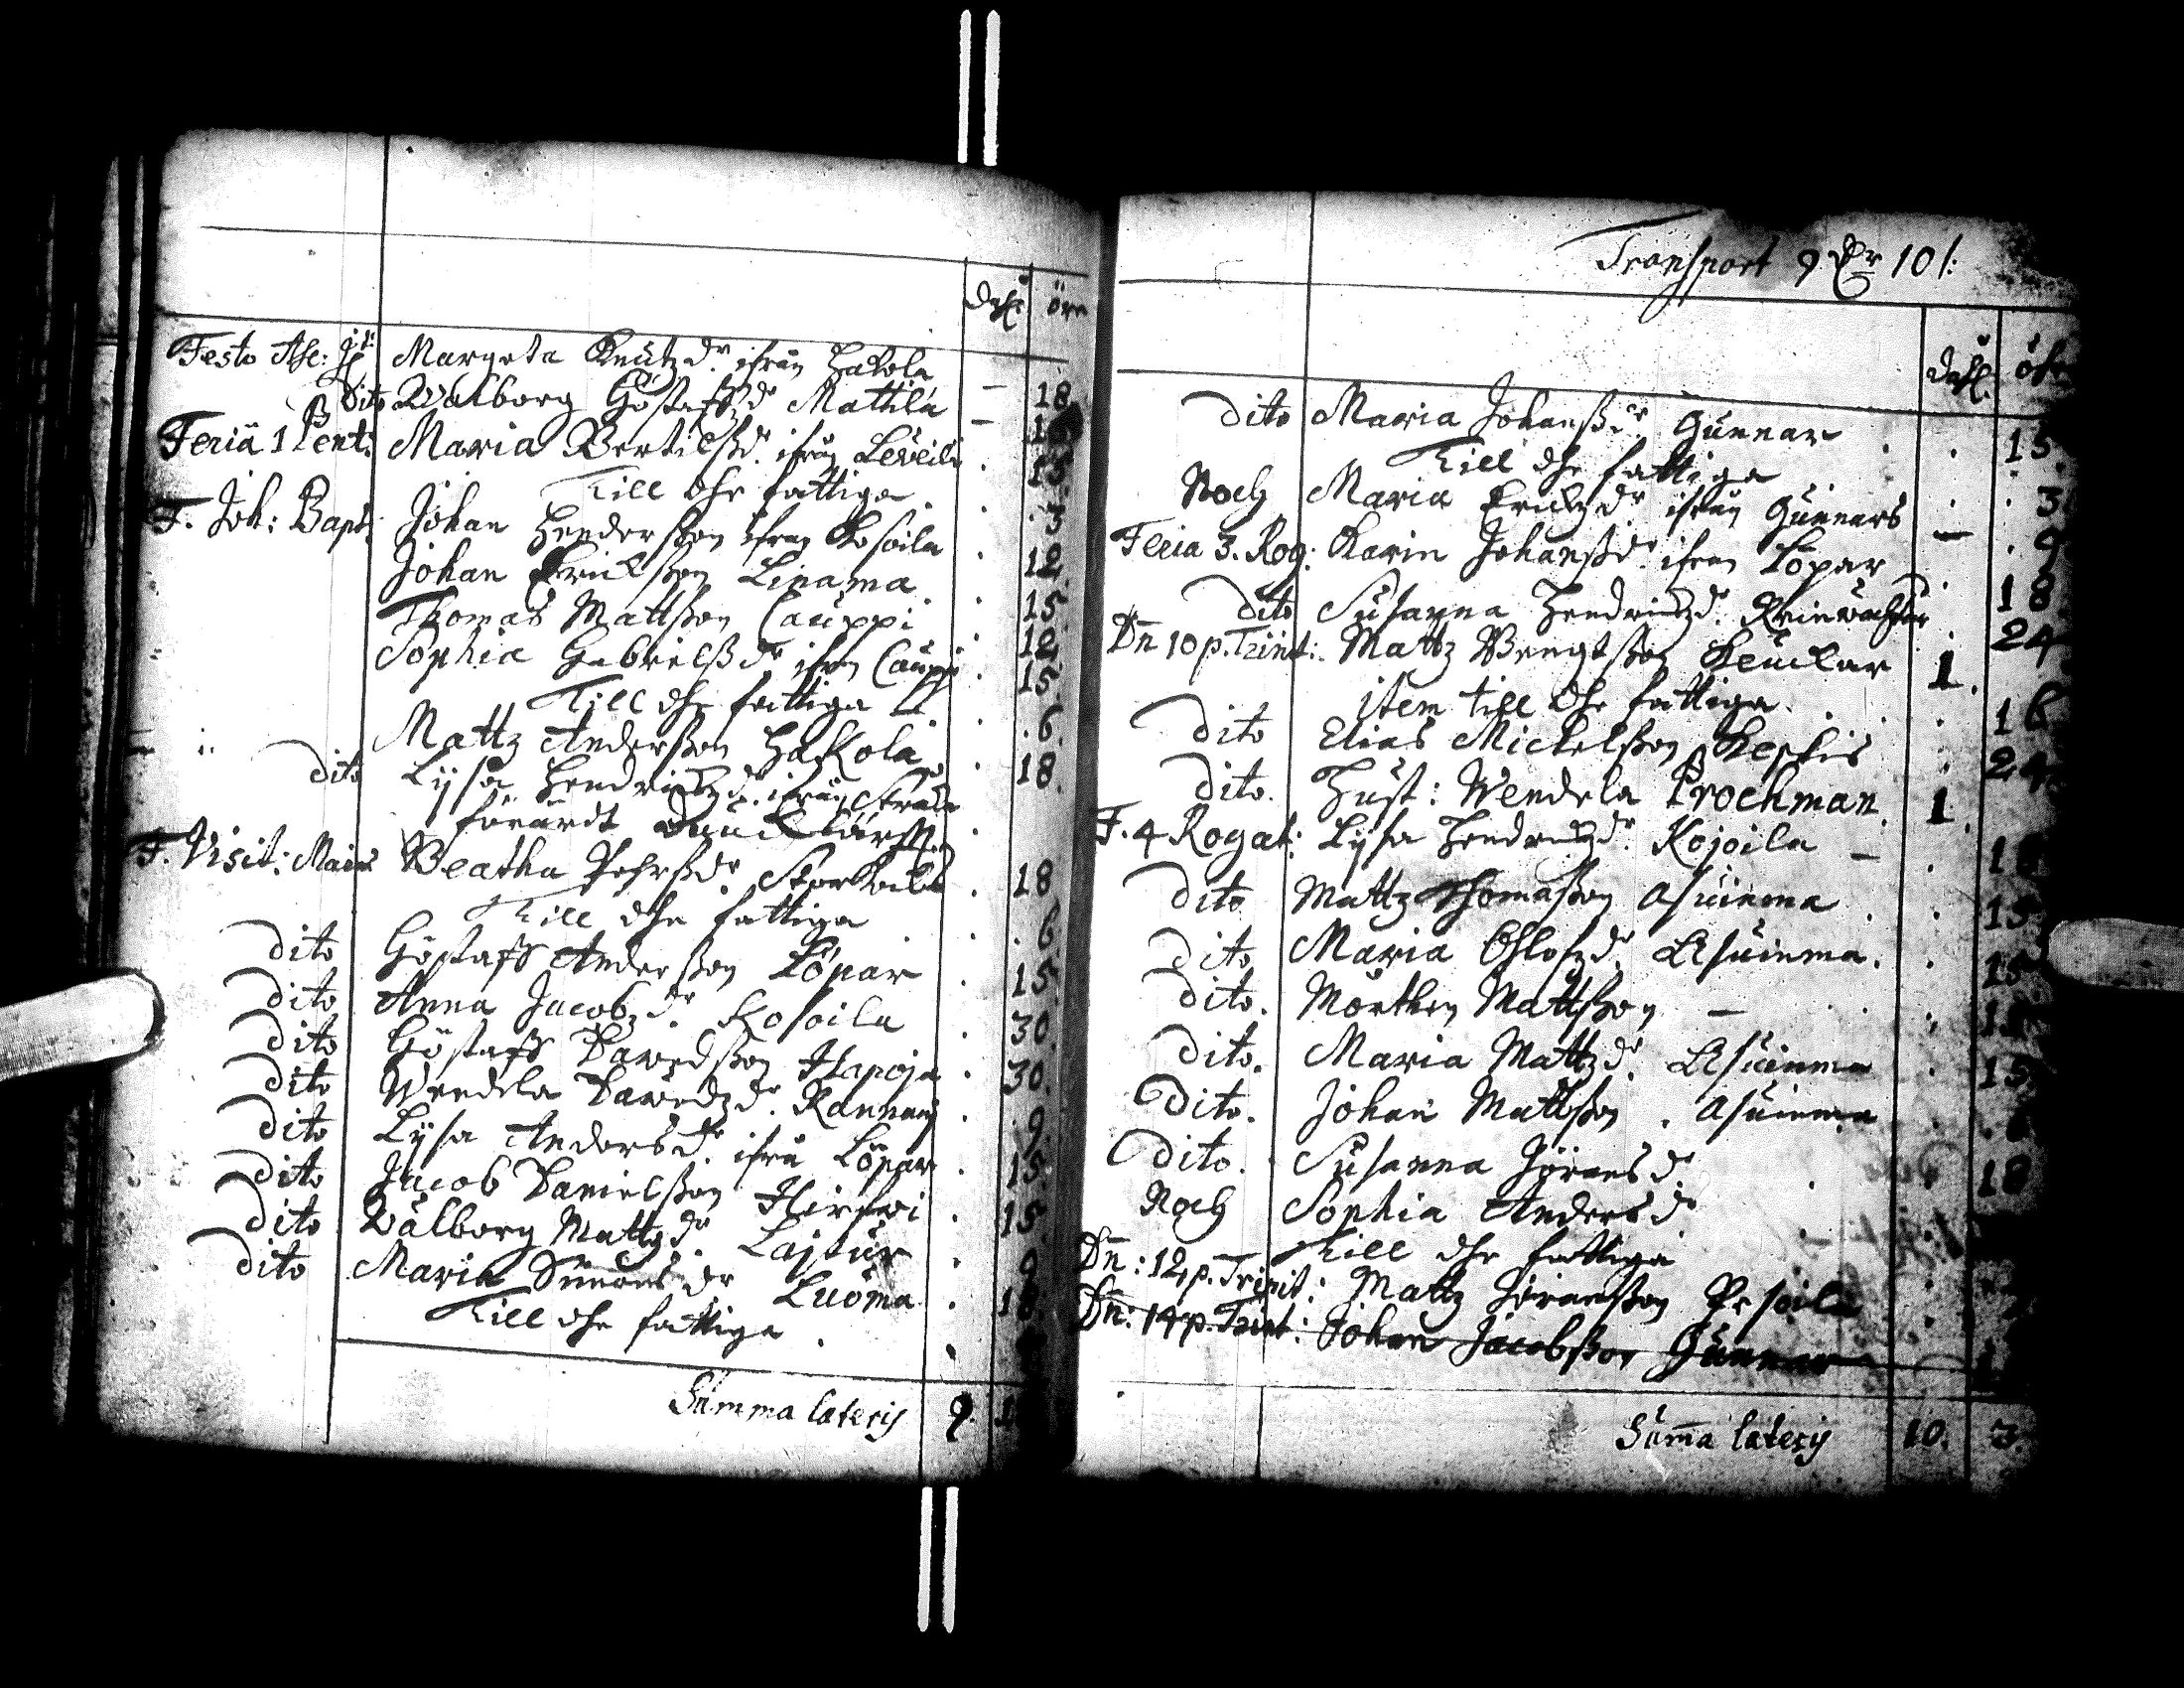 Dahl. öre
Festo Asc: Margeta Knutzdr. ifrån Hakola - 18
Dito Walborg Göstafszdr Mattila -
Feria 1 Pent: Maria Bertilßdr. ifrån . 15.
Till dhe fattiga . 3
F. Joh: Bapt: Johan Henderßon ifrån Kosoila . 12.
Johan Erichßon Linama . 15.
Thomas Mattßon Cauppi . 12
Sophia Gabrielßdr ifrån Cauppi . 15.
Till dhe fattiga . 6.
Mattz Anderßon Hakola . 18.
dito Lysa Hendrichzdr. ifrån
förärdt
F. Visit: Mariæ Beatha Pehrßdr. . 18
Till dhe fattiga . 6
dito Göstaff Anderßon Löpar . 15.
dito Anna Jacobzdr. Kosoila . 30.
dito Göstaff Dawedßon Hapoja . 30.
dito Wendela Dawedzdr. . 9.
dito Lysa Andersdr. ifrå Löpar . 15.
dito Jacob Danielßon Hirfwi . 15.
dito Wålborg Mattzdr. . 9
dito Maria Simonsdr Luoma . 18.
Till dhe fattiga .
Summa lateris 9.
Transport 9 Dr 10 /:
Dahl. öhr
dito Maria Johanßdr. Gunnar . 15.
Till dhe fattiga . 3
Noch Maria Erichzdr ifrån Gunnars - . 9
Feria 3. Rog: Karin Johanßdr. ifrån Löpar . 18
Dito Susanna Hendrichzdr. . 24
Dn 10 p. Trint: Mattz Bengtßon 1.
item till dhe fattiga . 16
dito Elias Michelßon . 24.
dito. Hust: Wendela Prochman. 1.
F. 4 Rogat: Lysa Hendrichzdr. Kojoila - . 18
dito Mattz Thomaßon Asuinma . 15
dito Maria Olofzdr. Asuinma . 15
dito. Mårthen Mattßon -
dito. Maria Mattzdr. Asuinma . 15
Dito. Johan Mattßon . Asuinma
Dito. Susanna Jöransdr . 18
Noch Sophia Andersdr
Till dhe fattiga
Dn: 12. p. Trinit: Mattz Jöranßon
Dn: 14 p. Trint: Johan Jacobßon Gunnar
Summa lateris 10. 3.